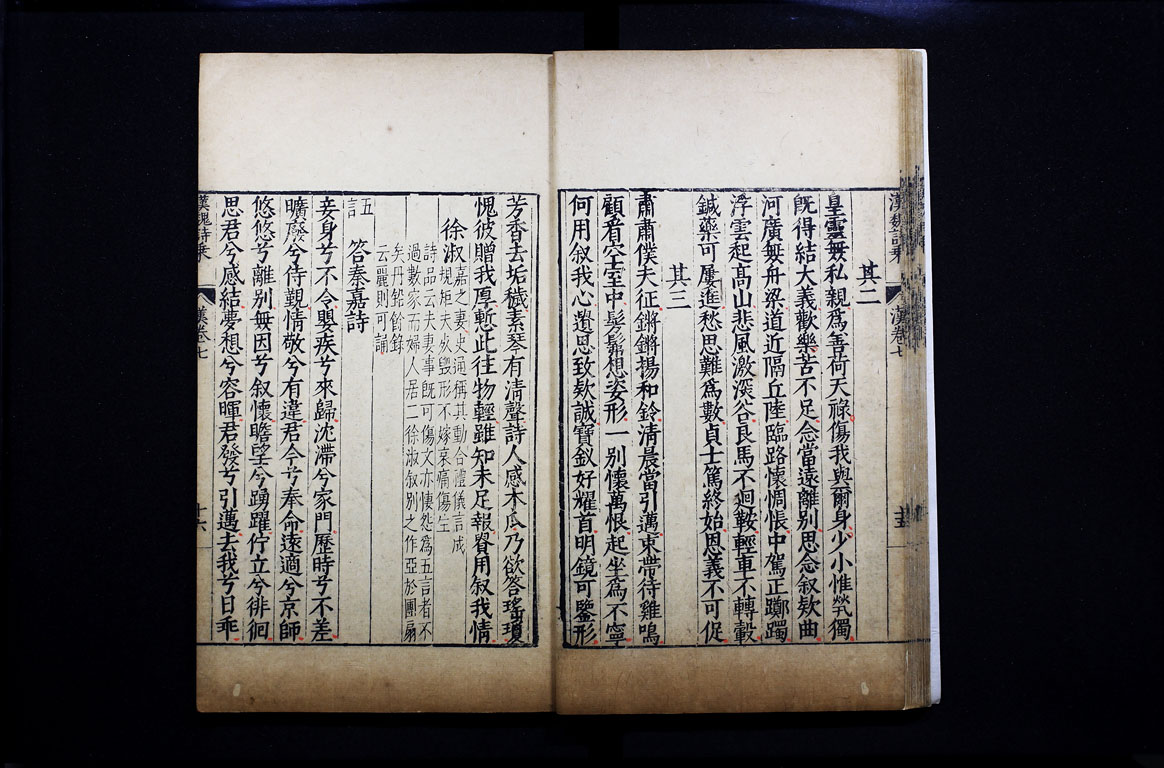 其二
皇靈無私親爲善荷天祿傷我與爾身少小惟煢獨
旣得結大義歡樂苦不足念當遠離別思念叙欵曲
河廣無舟梁道近隔丘陸臨路懷惆悵中駕正躑躅
浮雲起高山悲風激深谷良馬不迴鞍輕車不轉轂
鍼藥可屢進愁思難爲數貞士篤終始恩義不可促
其三
肅肅僕夫征鏘鏘揚和鈴清晨當引邁束帶待雞鳴
顧看空室中髣髴想姿形一別懷萬恨起坐爲不寧
何用叙我心遺思致欵誠寶釵好耀首明鏡可鑒形
芳香去垢穢素琴有清聲詩人感木瓜乃欲答瑤瓊
愧彼贈我厚慙此往物輕雖知未足報貴用叙我情
徐淑
嘉之妻史通稱其動合禮儀言成
規矩夫歿毀形不嫁哀慟傷生
詩品云夫妻事旣可傷文亦悽怨爲五言者不
過數家而婦人居二徐淑叙別之作亞於團扇
矣丹鉛餘錄
云麗則可誦
五言
答秦嘉詩
妾身兮不令嬰疾兮來歸沈滯兮家門歷時兮不差
曠廢兮侍覲情敬兮有違君今兮奉命遠適兮京師
悠悠兮離別無因兮叙懷瞻望兮踴躍佇立兮徘徊
思君兮感結夢想兮容暉君發兮引邁去我兮日乖
漢魏詩乗
漢卷七
十六